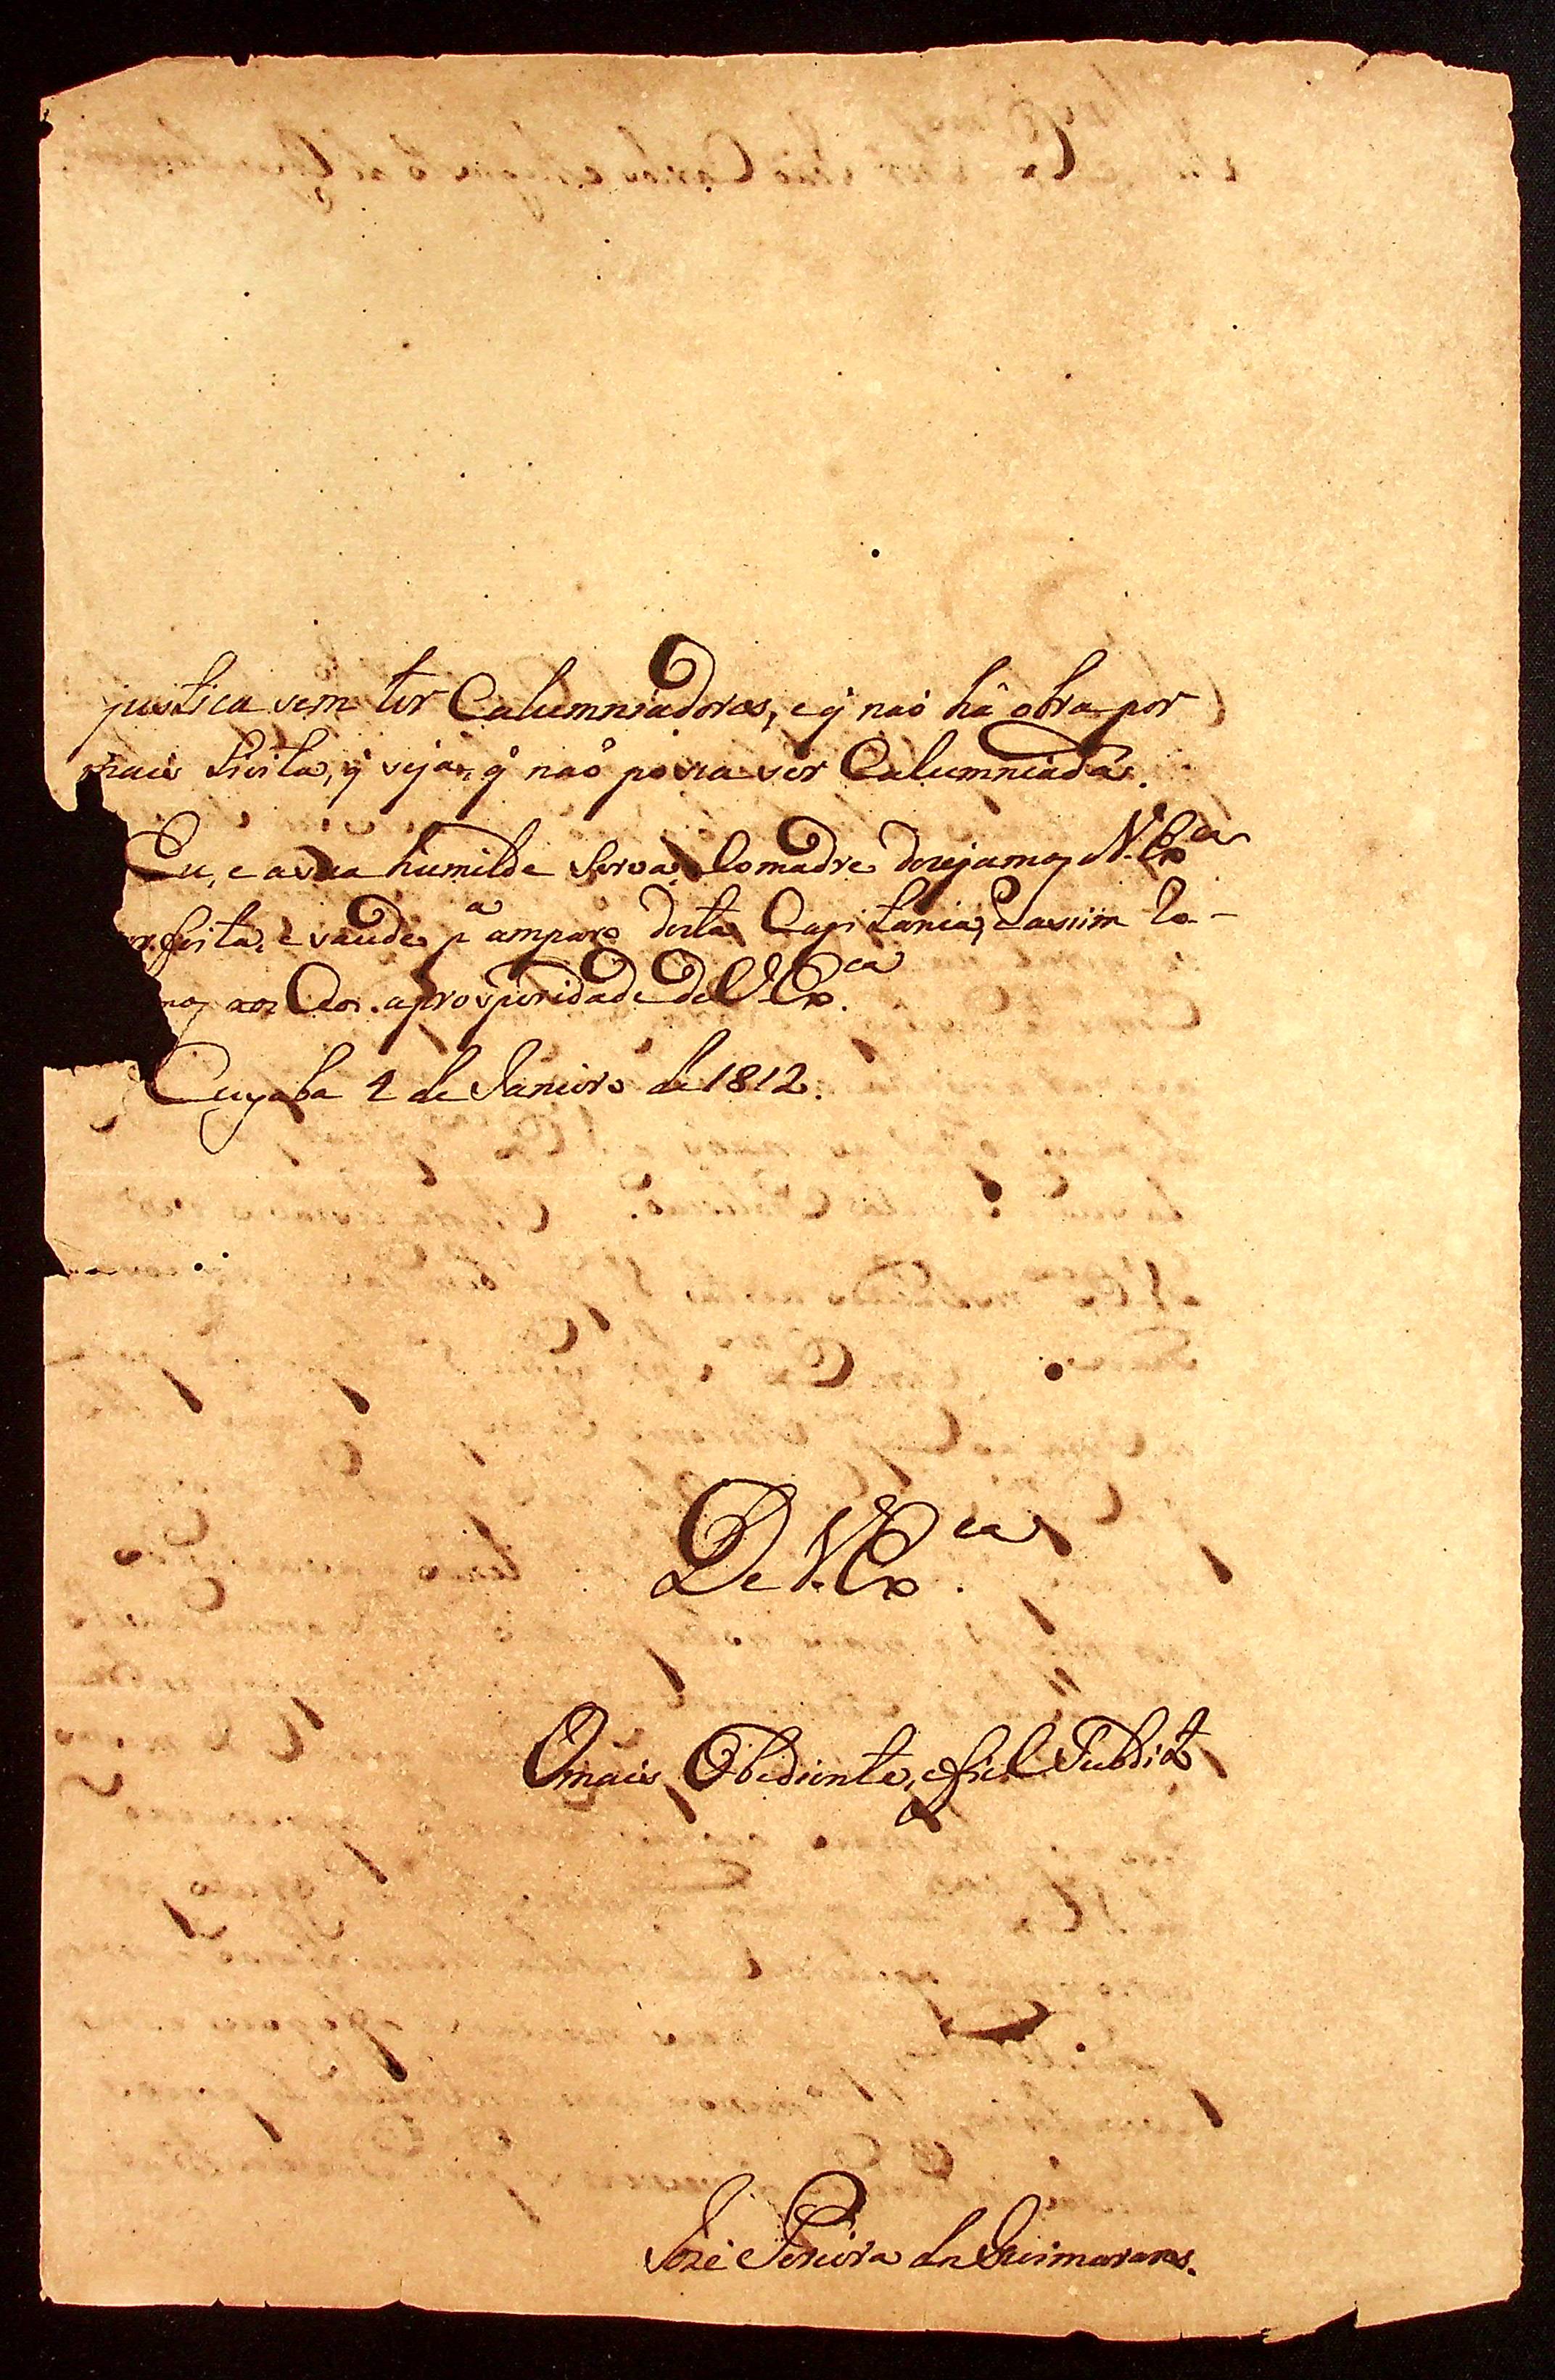 justica sem ter Calumniadores, e q̃ naõ hâ obra por
mais Licita, q̃ seja, q̃ naõ possa ser Calumniada.
Eu, e a sua humilde Serva, Comadre dezejamos V. Exca
feita, e saude pa amparo desta Capitania, e assim to-
mos nos Ceos. a prosperidade de V. Exca.
Cuyaba 2 de Janeiro de 1812.
De V. Exca.
O mais Obediente, e fiel Subdito
Jozé Pereira dn Guimaraens.